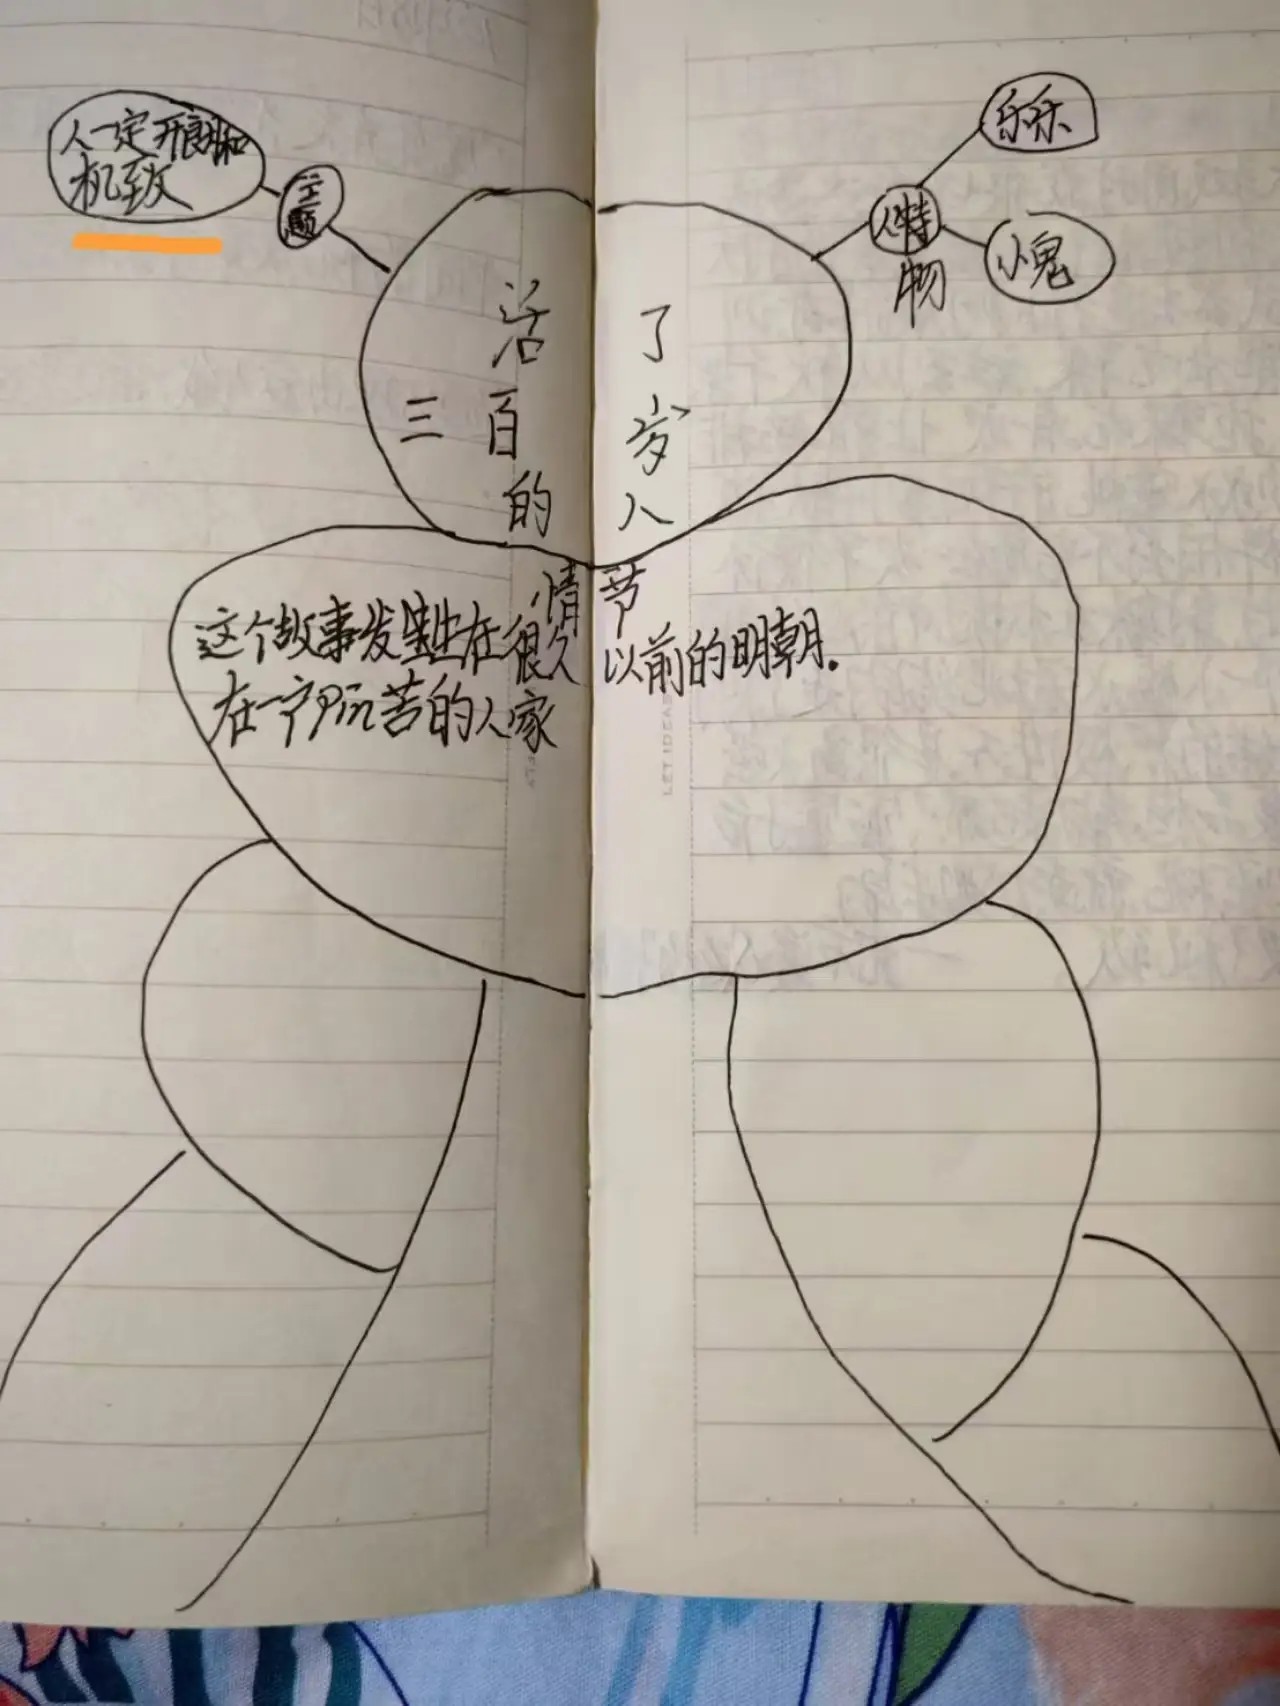 人一定开朗和
机致
主题
乐乐
人物
特
小鬼
活了
三百岁
的人
情节
这个故事发生在很久以前的明朝.
在一户 苦的人家